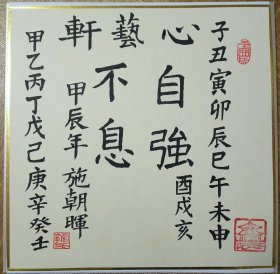 子丑寅卯辰巳午未申
酉戌亥
心藝軒
自強
不息
甲辰年 施朝暉
甲乙丙丁戊己庚辛癸壬